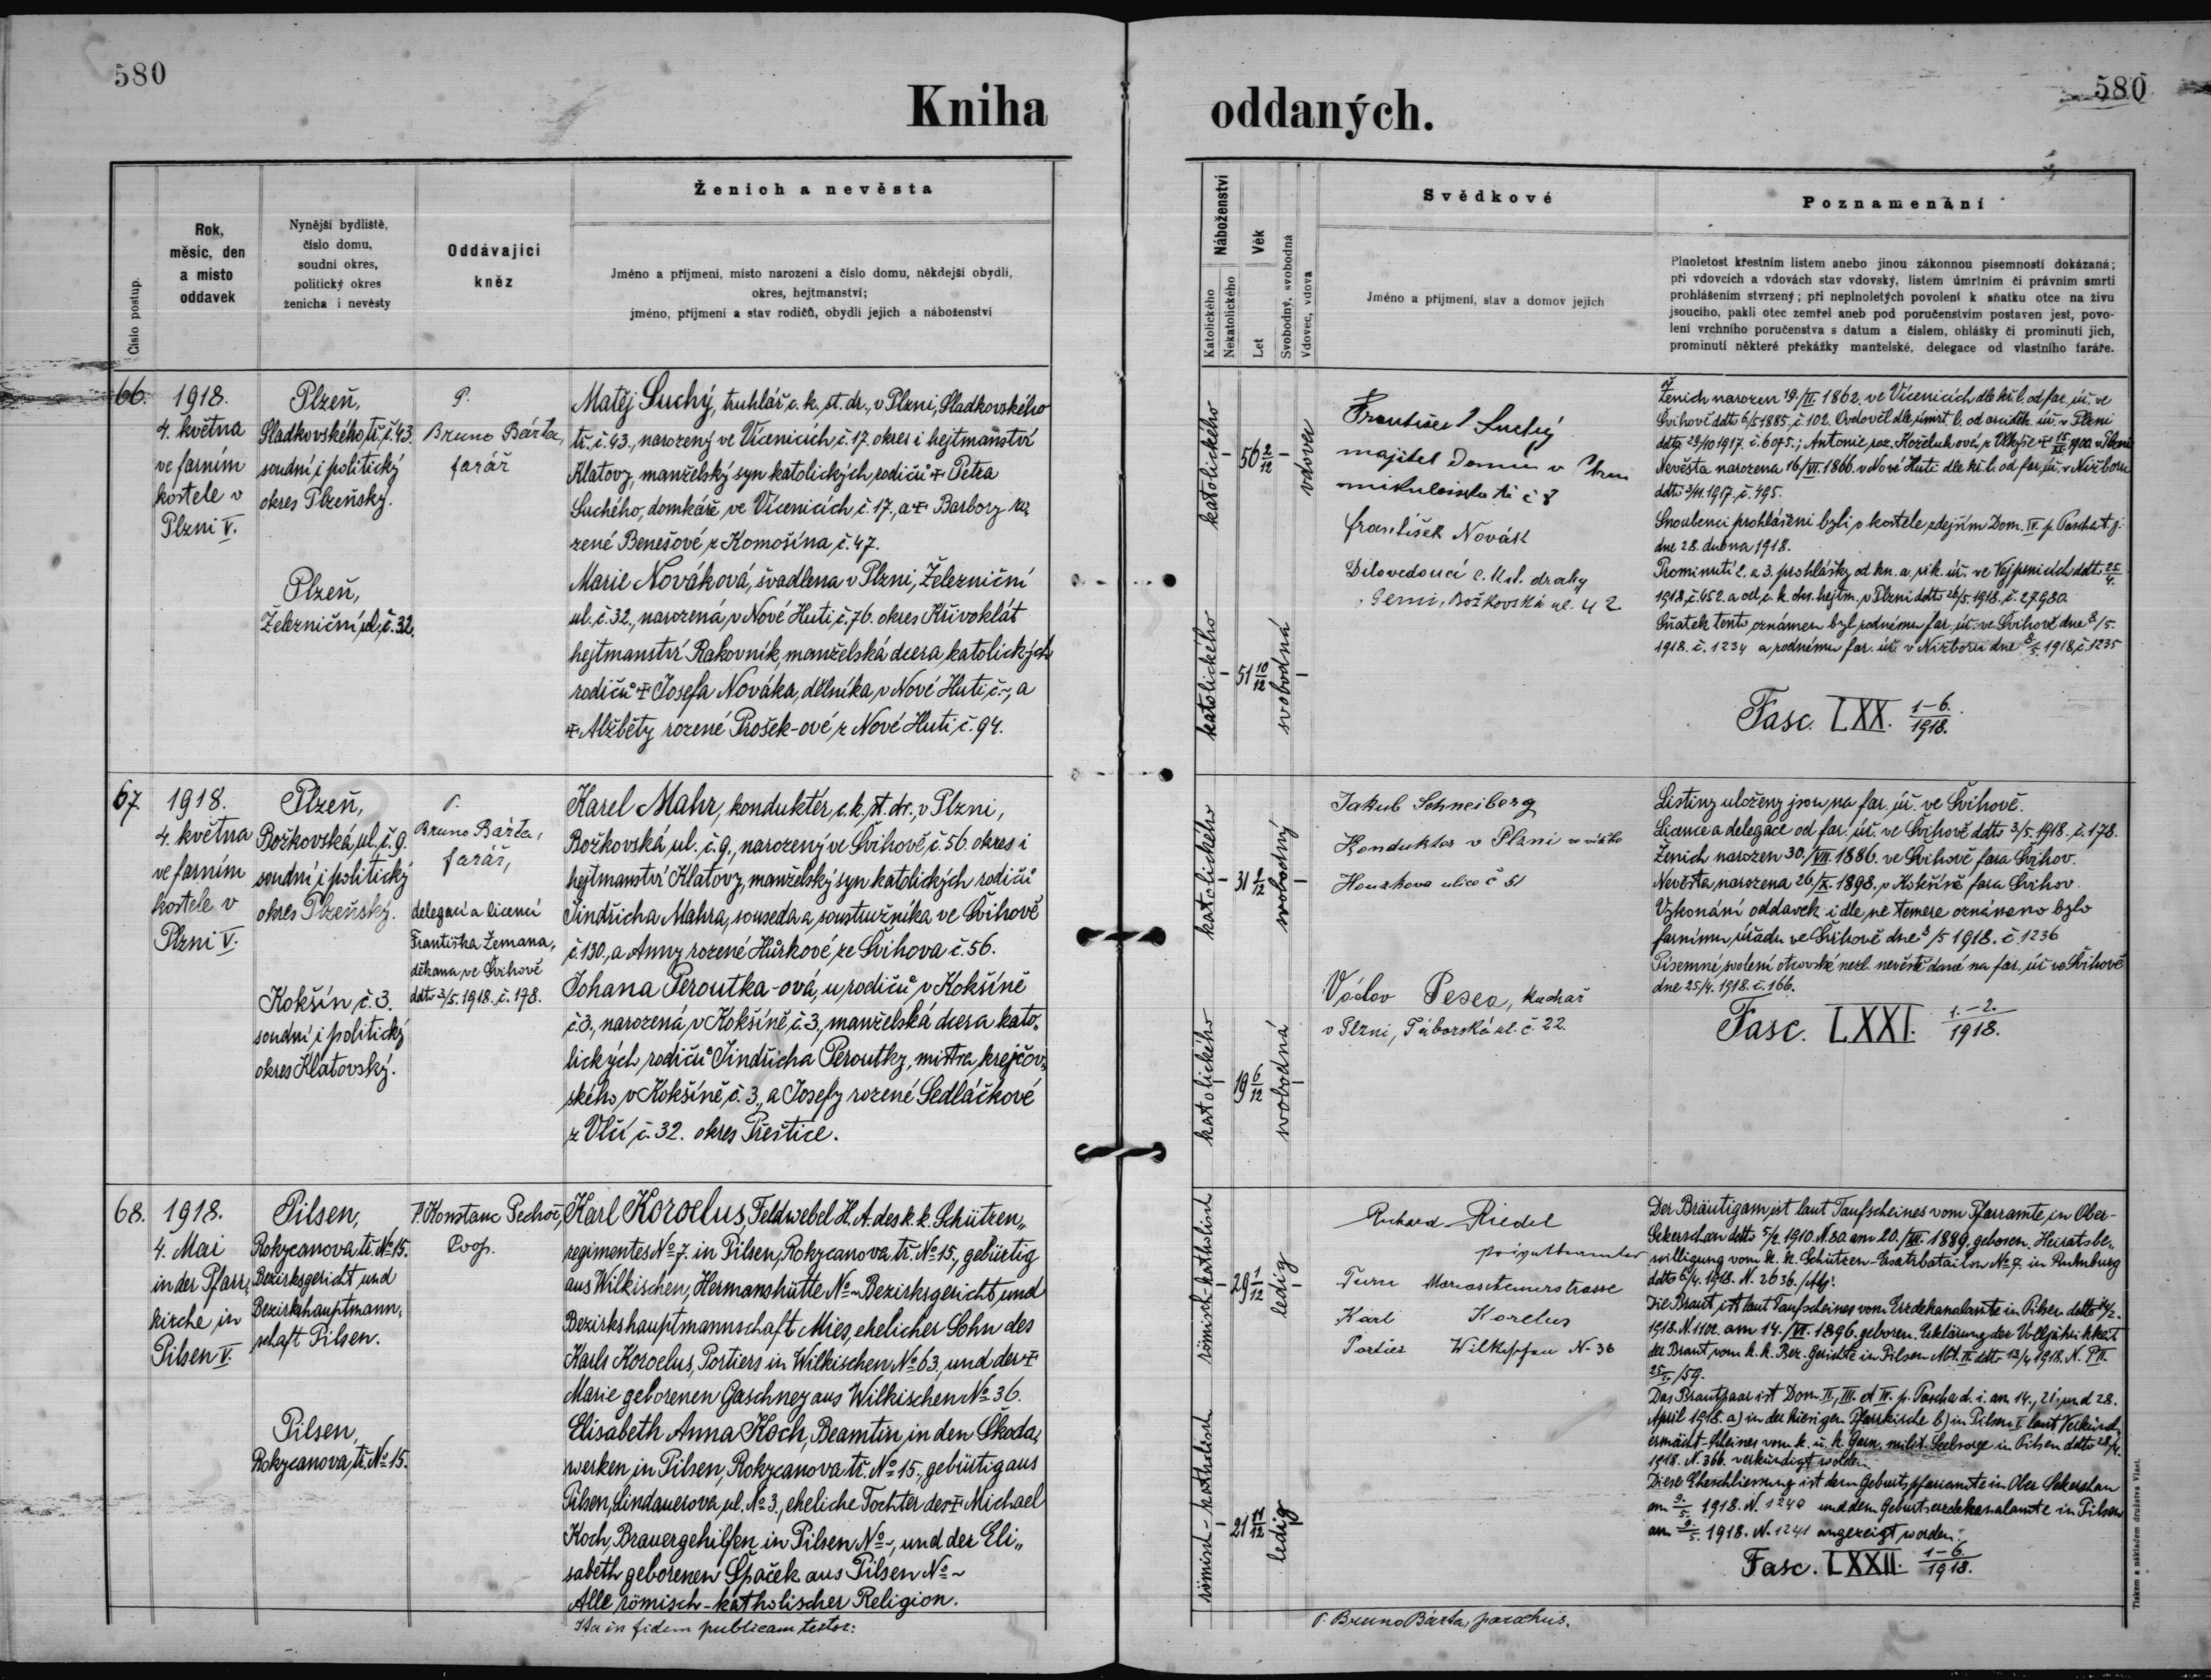 580
580
Kniha oddaných.
Číslo postup.
Rok,
měsíc, den
a místo
oddavek
Nynější bydliště,
číslo domu,
soudní okres,
politický okres
ženicha i nevěsty
Oddávající
kněz
Ženich a nevěsta
Jméno a příjmení, místo narození a číslo domu, někdejší obydlí,
okres, hejtmanství;
jméno, příjmení a stav rodičů, obydlí jejich a náboženství
Náboženství
Katolického
Nekatolického
Věk
Let
Svobodný, svobodná
Vdovec, vdova
Svědkové
Jméno a příjmení, stav a domov jejich
Poznamenání
Plnoletost křestním listem anebo jinou zákonnou písemností dokázaná;
při vdovcích a vdovách stav vdovský, listem úmrtním či právním smrti
prohlášením stvrzený; při neplnoletých povolení k sňatku otce na živu
jsoucího, pakli otec zemřel aneb pod poručenstvím postaven jest, povo-
lení vrchního poručenstva s datum a číslem, ohlášky či prominutí jich,
prominutí některé překážky manželské, delegace od vlastního faráře.
66.
1918.
4. května
ve farním
kostele v
Plzni V.
Plzeň,
Sladkovského tř. č. 43.
soudní i politický
okres Plzeňský.
Plzeň,
Železniční ul. č. 32.
P.
Bruno Bárta,
farář
Matěj Suchý, truhlář c. k. st. dr., v Plzni, Sladkovského
tř. č. 43., narozený ve Vícenicích č. 17. okres i hejtmanství
Klatovy, manželský syn katolických rodičů + Petra
Suchého, domkáře ve Vícenicích č. 17., a + Barbory ro-
zené Benešové z Komošína č. 47.
Marie Nováková, švadlena v Plzni, Železniční
ul. č. 32., narozená v Nové Huti č. 76. okres Křivoklát
hejtmanství Rakovník, manželská dcera katolických
rodičů + Josefa Nováka, dělníka v Nové Huti č. -, a
+ Alžběty rozené Prošek-ové z Nové Huti č. 94.
katolického
56 2/12
vdovec
katolického
51 10/12
svobodná
František Suchý
majitel domu v
tř č 8
František Novák
Dílovedoucí c. k. st. dráhy
Božkovská ul. 42
Ženich narozen 19./II. 1862. ve Vícenicích dle kř. l. od far. úř. ve
Švihově ddto 6/5 1885, č. 102. Ovdověl dle úmrt. l. od arciděk. úř. v Plzni
ddto 29/10 1917. č. 6095.; Antonie roz. Koželuhové, z 1900 v Plzni
Nevěsta narozena 16/VI. 1866. v Nové Huti dle kř. l. od far. úř. v Nižboru
ddto 3/11. 1917. č. 495.
Snoubenci prohlášeni byli v kostele zdejším Dom. IV. p. Pascha t. j.
dne 28. dubna 1918.
Prominutí 2. a 3. prohlášky od kn. a. vik. úř. ve Vejprnicích ddt. 25/4.
1918, č. 452. a od c. k. okr. hejtm. v Plzni ddto 26/5. 1918. č. 27980
Sňatek tento oznámen byl rodnému far. úř. ve Švihově dne 8/5.
1918. č. 1234 a rodnému far. úř. v Nižboru dne 8/5. 1918, č. 1235
Fasc. LXX. 1-6./1918.
67.
1918.
4. května
ve farním
kostele v
Plzni V.
Plzeň,
Božkovská ul. č. 9.
soudní i politický
okres Plzeňský.
Kokšín č. 3.
soudní i politický
okres Klatovský.
P.
Bruno Bárta,
farář,
delegací a licencí
Františka Zemana,
děkana ve Švihově
ddto 3/5. 1918. č. 178.
Karel Mahr, konduktér c. k. st. dr. v Plzni,
Božkovská ul. č. 9., narozený ve Švihově č. 56. okres i
hejtmanství Klatovy, manželský syn katolických rodičů
Jindřicha Mahra, souseda a soustružníka ve Švihově
č. 130., a Anny rozené Hůrkové ze Švihova č. 56.
Johana Peroutka-ová, u rodičů v Kokšíně
č. 3., narozená v Kokšíně č. 3., manželská dcera kato-
lických rodičů Jindřicha Peroutky, mistra krejčov-
ského v Kokšíně č. 3., a Josefy rozené Sedláčkové
z Vlčí č. 32. okres Přeštice.
katolického
31 9/12
svobodný
katolického
19 6/12
svobodná
Jakub Schneiberg
Konduktor v Plzni
ulice č 51
Václav Pesca, kuchař
v Plzni, Táborská ul. č. 22.
Listiny uloženy jsou na far. úř. ve Švihově.
Licence a delegace od far. úř. ve Švihově ddto 3/5. 1918, č. 178.
Ženich narozen 30./VII. 1886. ve Švihově fara Švihov.
Nevěsta narozena 26/X. 1898. v Kokšíně fara Švihov.
Vykonání oddavek i dle ne temere oznámeno bylo
farnímu úřadu ve Švihově dne 8/5 1918. č. 1236
Písemné svolení otcovské nezl. nevěstě dané na far. úř. ve Švihově
dne 25/4. 1918. č. 166.
Fasc. LXXI. 1.-2./1918.
68.
1918.
4. Mai
in der Pfarr-
kirche in
Pilsen V.
Pilsen,
Rokycanova tř. No 15.
Bezirksgericht und
Bezirkshauptmann-
schaft Pilsen.
Pilsen,
Rokycanova tř. No 15.
P. Konstanc Pechoč,
Coop.
Karl Korcelus, Feldwebel H. A. des k. k. Schützen-
regimentes No 7. in Pilsen, Rokycanova tř. No 15., gebürtig
aus Wilkischen, Hermannshütte No - Bezirksgericht und
Bezirkshauptmannschaft Mies, ehelicher Sohn des
Karls Korcelus, Portiers in Wilkischen No 63, und der +
Marie geborenen Gaschney aus Wilkischen No 36.
Elisabeth Anna Koch, Beamtin in den Škoda-
werken in Pilsen, Rokycanova tř. No 15., gebürtig aus
Pilsen, Lindauerova ul. No 3., eheliche Tochter des + Michael
Koch, Brauergehilfen in Pilsen No -, und der Eli-
sabeth geborenen Špaček aus Pilsen No -
Alle römisch-katholischer Religion.
römisch-katholisch
29 1/12
ledig
römisch-katholisch
21 11/12
ledig
Richard Riedel
Privatbeamter
Turn
Karl Korelus
Portier No 36
Der Bräutigam ist laut Taufscheines vom Pfarramte in Ober-
Sekerschan ddto 5/2 1910. N. 80 am 20./III. 1889. geboren. Heiratsbe-
willigung vom k. k. Schützen-Ersatzbataillon No 7. in Rumburg
ddto 6/4. 1918. N. 2636. /Adj.
Die Braut ist laut Taufscheines vom Erzdekanalamte in Pilsen ddto
1918. N. 1102. am 14./VI. 1896. geboren. Erklärung der Volljährigkeit
der Braut vom k. k. Bez. Gerichte in Pilsen Abt. II. ddto 12/4 1918. N. P II.
/59.
Das Brautpaar ist Dom. II., III. et IV. p. Pascha d. i. am 14., 21. und 28.
April 1918. a) in der hiesigen Pfarrkirche b) in Pilsen I. laut Verkünd-
ermächt-Scheines vom k. u. k. Garn. milit. Seelsorge in Pilsen ddto 28/4.
1918. N. 366. verkündigt worden.
Diese Eheschliessung ist dem Geburtspfarramte in Ober Sekerschan
am 9/5. 1918. N. 1240 und dem Geburtserzdekanalamte in Pilsen
am 9/5. 1918. N. 1241 angezeigt worden.
Fasc. LXXII. 1-6./1918.
Ita in fidem publicam testor:
P. Bruno Bárta, parochus.
Tiskem a nákladem družstva Vlast.